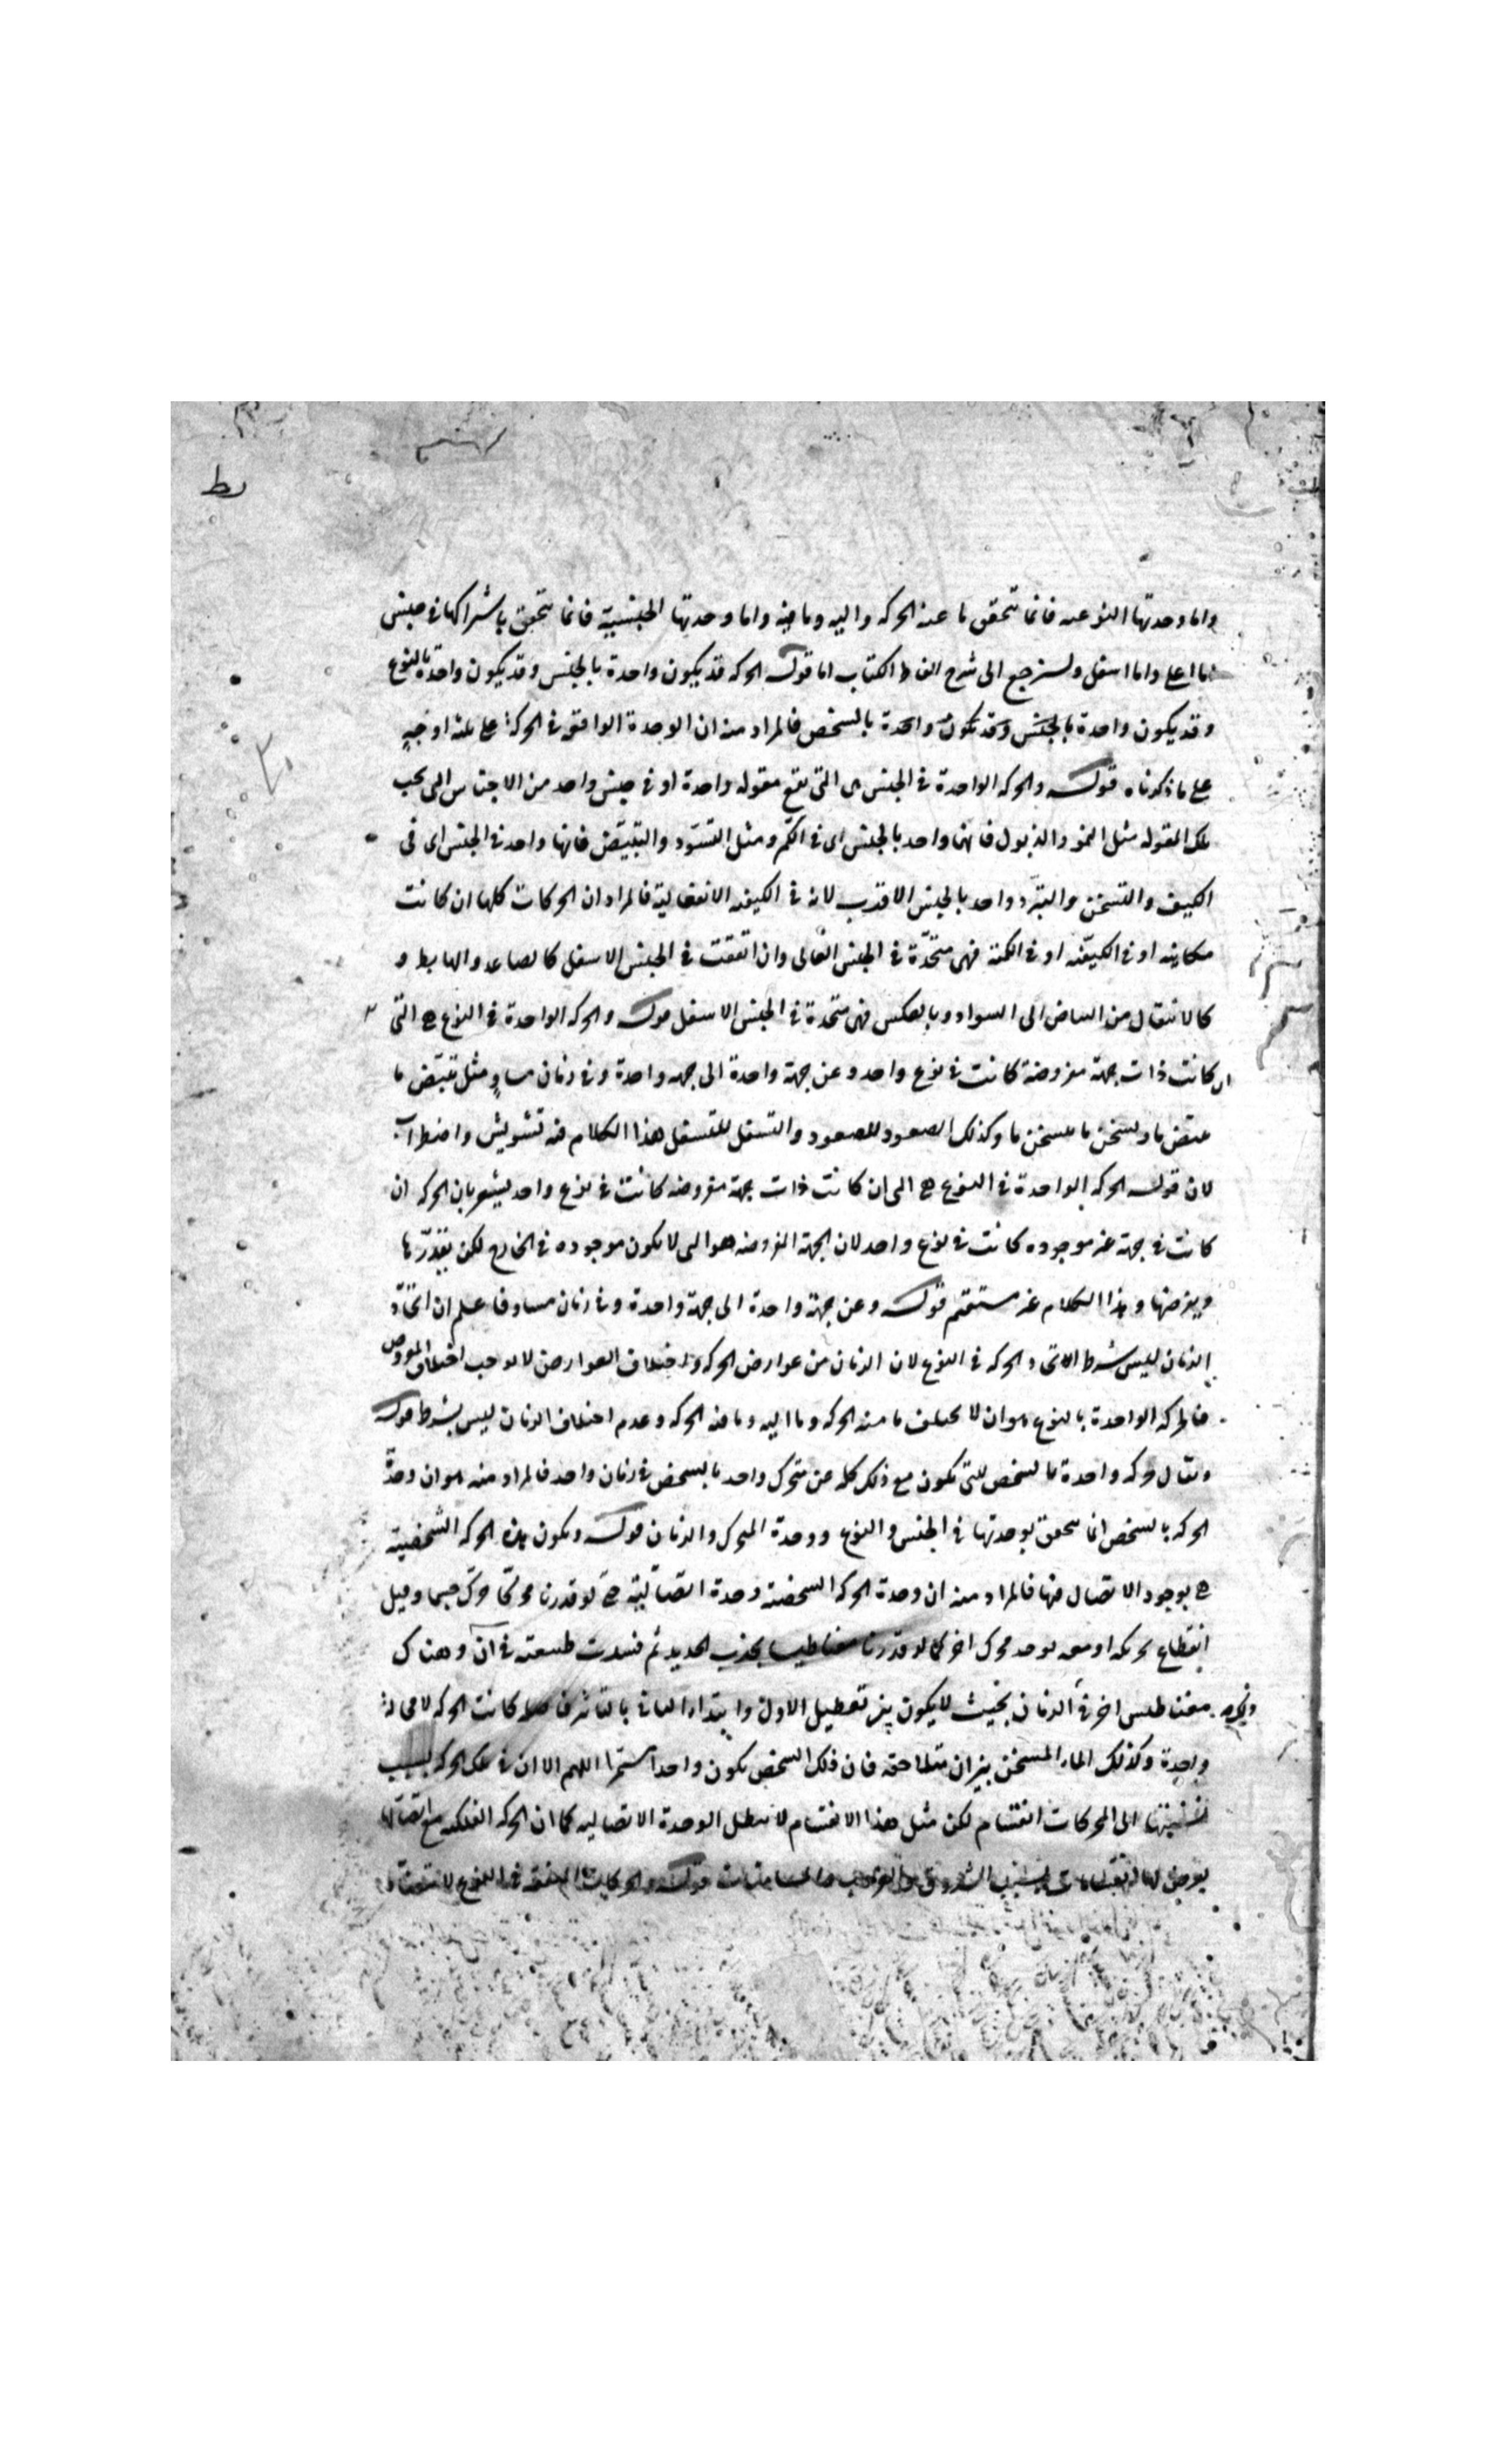 واما وحدتها النوعيه فانما تتحقق ما عنه الحركه واليه وما فيه واما وحدتها الجنسية فانما تتحقق باشراكها فى جنس
اما اعلى واما اسفل ولنرجع الى شرح الفاظ الكتاب اما قوله الحركه قد يكون واحدة بالجنس وقد يكون واحدة بالنوع
وقد يكون واحدة بالجنس وقد تكون واحدة بالشخص فالمراد منه ان الوحدة الواقعه فى الحركة على ثلثه اوجه
على ما ذكرناه قوله والحركه الواحدة فى الجنس هى التى تقع مقوله واحدة او فى جنس واحد من الاجناس التى تحت
تلك المقوله مثل النمو والذبول فانهما واحد بالجنس اى فى الكم ومثل التسود والتبيض فانها واحد فى الجنس اى فى
الكيف والتسخن والتبرد واحد بالجنس الاقرب لانه فى الكيفيه الانفعالية فالمراد ان الحركات كلها ان كانت
مكانيه او فى الكيفيه او فى الكميه فهى متحدة فى الجنس العالى وان اتفقت فى الجنس الاسفل كالصاعد والهابط و
كالانتقال من البياض الى السواد وبالعكس فهى متحدة فى الجنس الاسفل قوله والحركه الواحدة فى النوع هى التى
ان كانت ذات جهة مفروضة كانت فى نوع واحد وعن جهة واحدة الى جهه واحدة وفى زمان مساو مثل تبيض ما
لتبيض ما وتسخن ما لتسخن ما وكذلك الصعود للصعود والتسفل للتسفل هذا الكلام فيه تشويش واضطراب
لان قوله الحركه الواحدة فى النوع هى التى ان كانت ذات جهة مفروضه كانت فى نوع واحد يشعر بان الحركه ان
كانت فى جهة غير موجوده كانت فى نوع واحد لان الجهة المفروضه هو التى لا يكون موجوده فى الخارج لكن يقدرها
ويفرضها وهذا الكلام غير مستقيم قوله وعن جهة واحدة الى جهة واحدة وفى زمان مساو فاعلم ان اتحاد
الزمان ليس شرط الاتحاد الحركه فى النوع لان الزمان من عوارض الحركه واختلاف العوارض لا يوجب اختلاف المعروض
فالحركه الواحدة بالنوع هو ان لا يختلف ما منه الحركه وما اليه وما فيه الحركه وعدم اختلاف الزمان ليس بشرط قوله
ويقال حركه واحدة بالشخص للتى تكون مع ذلك كله عن متحرك واحد بالشخص فى زمان واحد فالمراد منه هو ان وحدة
الحركه بالشخص انما يتحقق بوحدتها فى الجنس والنوع ووحدة المتحرك والزمان قوله وتكون هذه الحركه الشخصية
هى بوجود الاتصال فيها فالمراد منه ان وحدة الحركه الشخصيه وحدة اتصالية حتى لو قدرنا محركا حرك جسما وقبل
انقطاع تحريكه او معه يوجد محرك اخر كما لو قدرنا مغناطيسا يجذب الحديد ثم فسدت طبيعته فى آن وهناك
مغناطيس اخر فى الزمان بحيث لا يكون بين تعطيل الاول وابتداء الثانى بالتاثير فصلا كانت الحركه لا محالة
واحدة وكذلك الماء المسخن بنيران متلاحقه فان ذلك الشخص يكون واحدا مستمرا اللهم الا ان فى تلك الحركه بسبب
نسبتها الى المحركات انقسام لكن مثل هذا الانقسام لا يبطل الوحدة الاتصاليه كما ان الحركه الفلكيه مع اتصالها
يعرض لها انقسامات بسبب الشروق والغروب والمسامتات قوله والحركات المتفقه فى النوع لا تتضاد